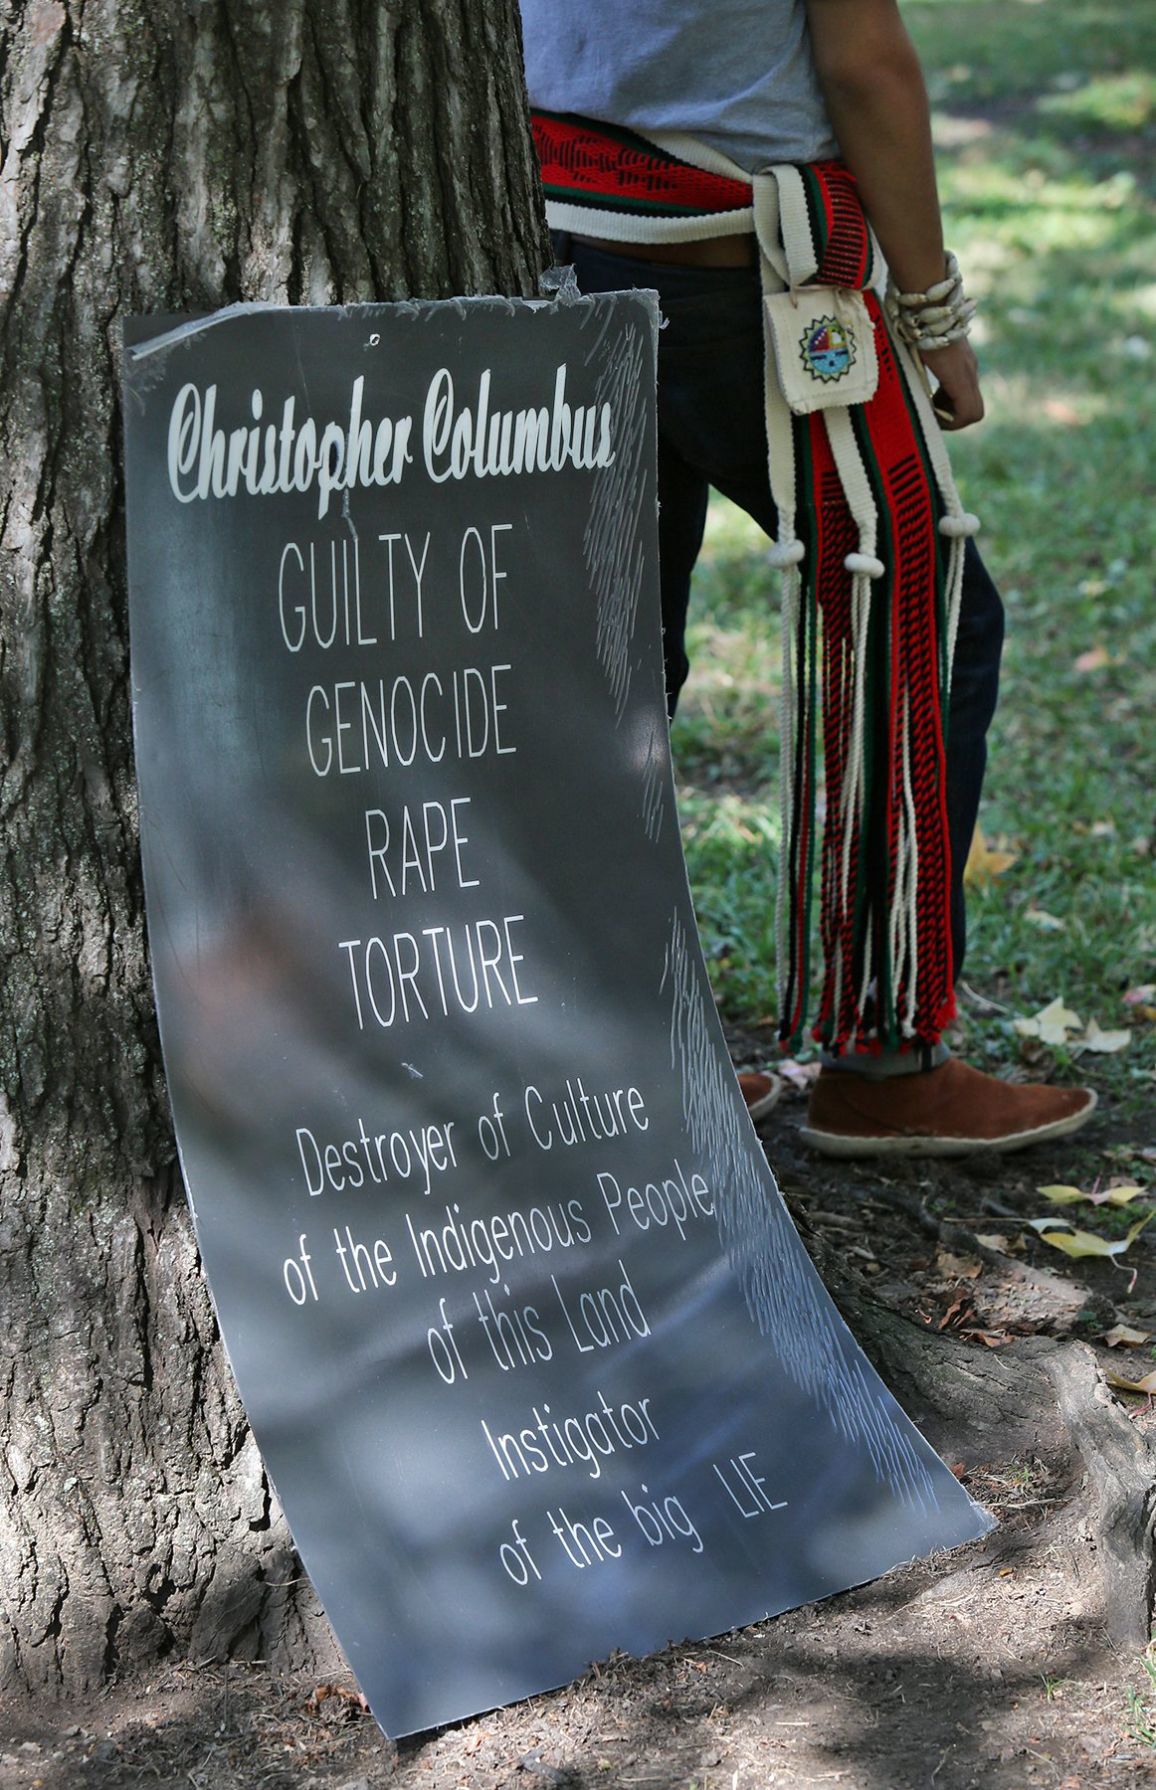 Christopher Columbus
GUILTY OF
GENOCIDE
RAPE
TORTURE
Destroyer of Culture
of the Indigenous People
of this Land
Instigator
of the big LIE